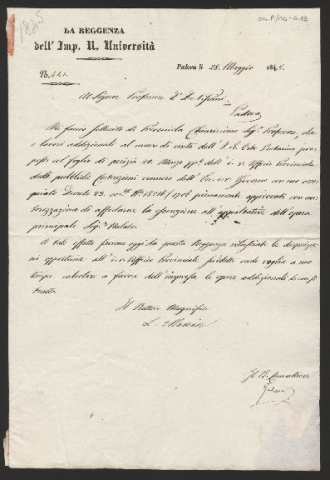 1845
LA REGGENZA
dell' Imp. R. Università
N. 441.
Padova li 28 Maggio 1845.
Al Signor Professor De Visiani
Padova
Mi faccio sollecito di prevenirla Chiarissimo Sigr Professore, che
i lavori addizionali al muro di cinta dell' I. R. Orto Botanico pro-
posti col foglio di perizia 20 Marzo pp. dell' i. r. Ufficio Provinciale
delle pubbliche Costruzioni vennero dall' Eccelso Governo con suo
Decreto 23 corr. N. pienamente approvati con au-
torizzazione di affidarne la esecuzione all' appaltatore dell' opera
principale Sigr
A tale effetto furono oggi da questa Reggenza rilasciate le disposizio-
ni opportune all' i. r. Ufficio Provinciale onde voglia a suo
tempo a favore dell' impresa le opere addizionali di cui
Il Rettore Magnifico
L. Menin